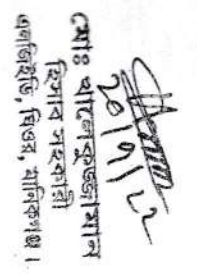 ২০/৭/২২
মোঃ খালেকুজ্জামান
হিসাব সহকারী
এলজিইডি, ঘিওর, মানিকগঞ্জ।